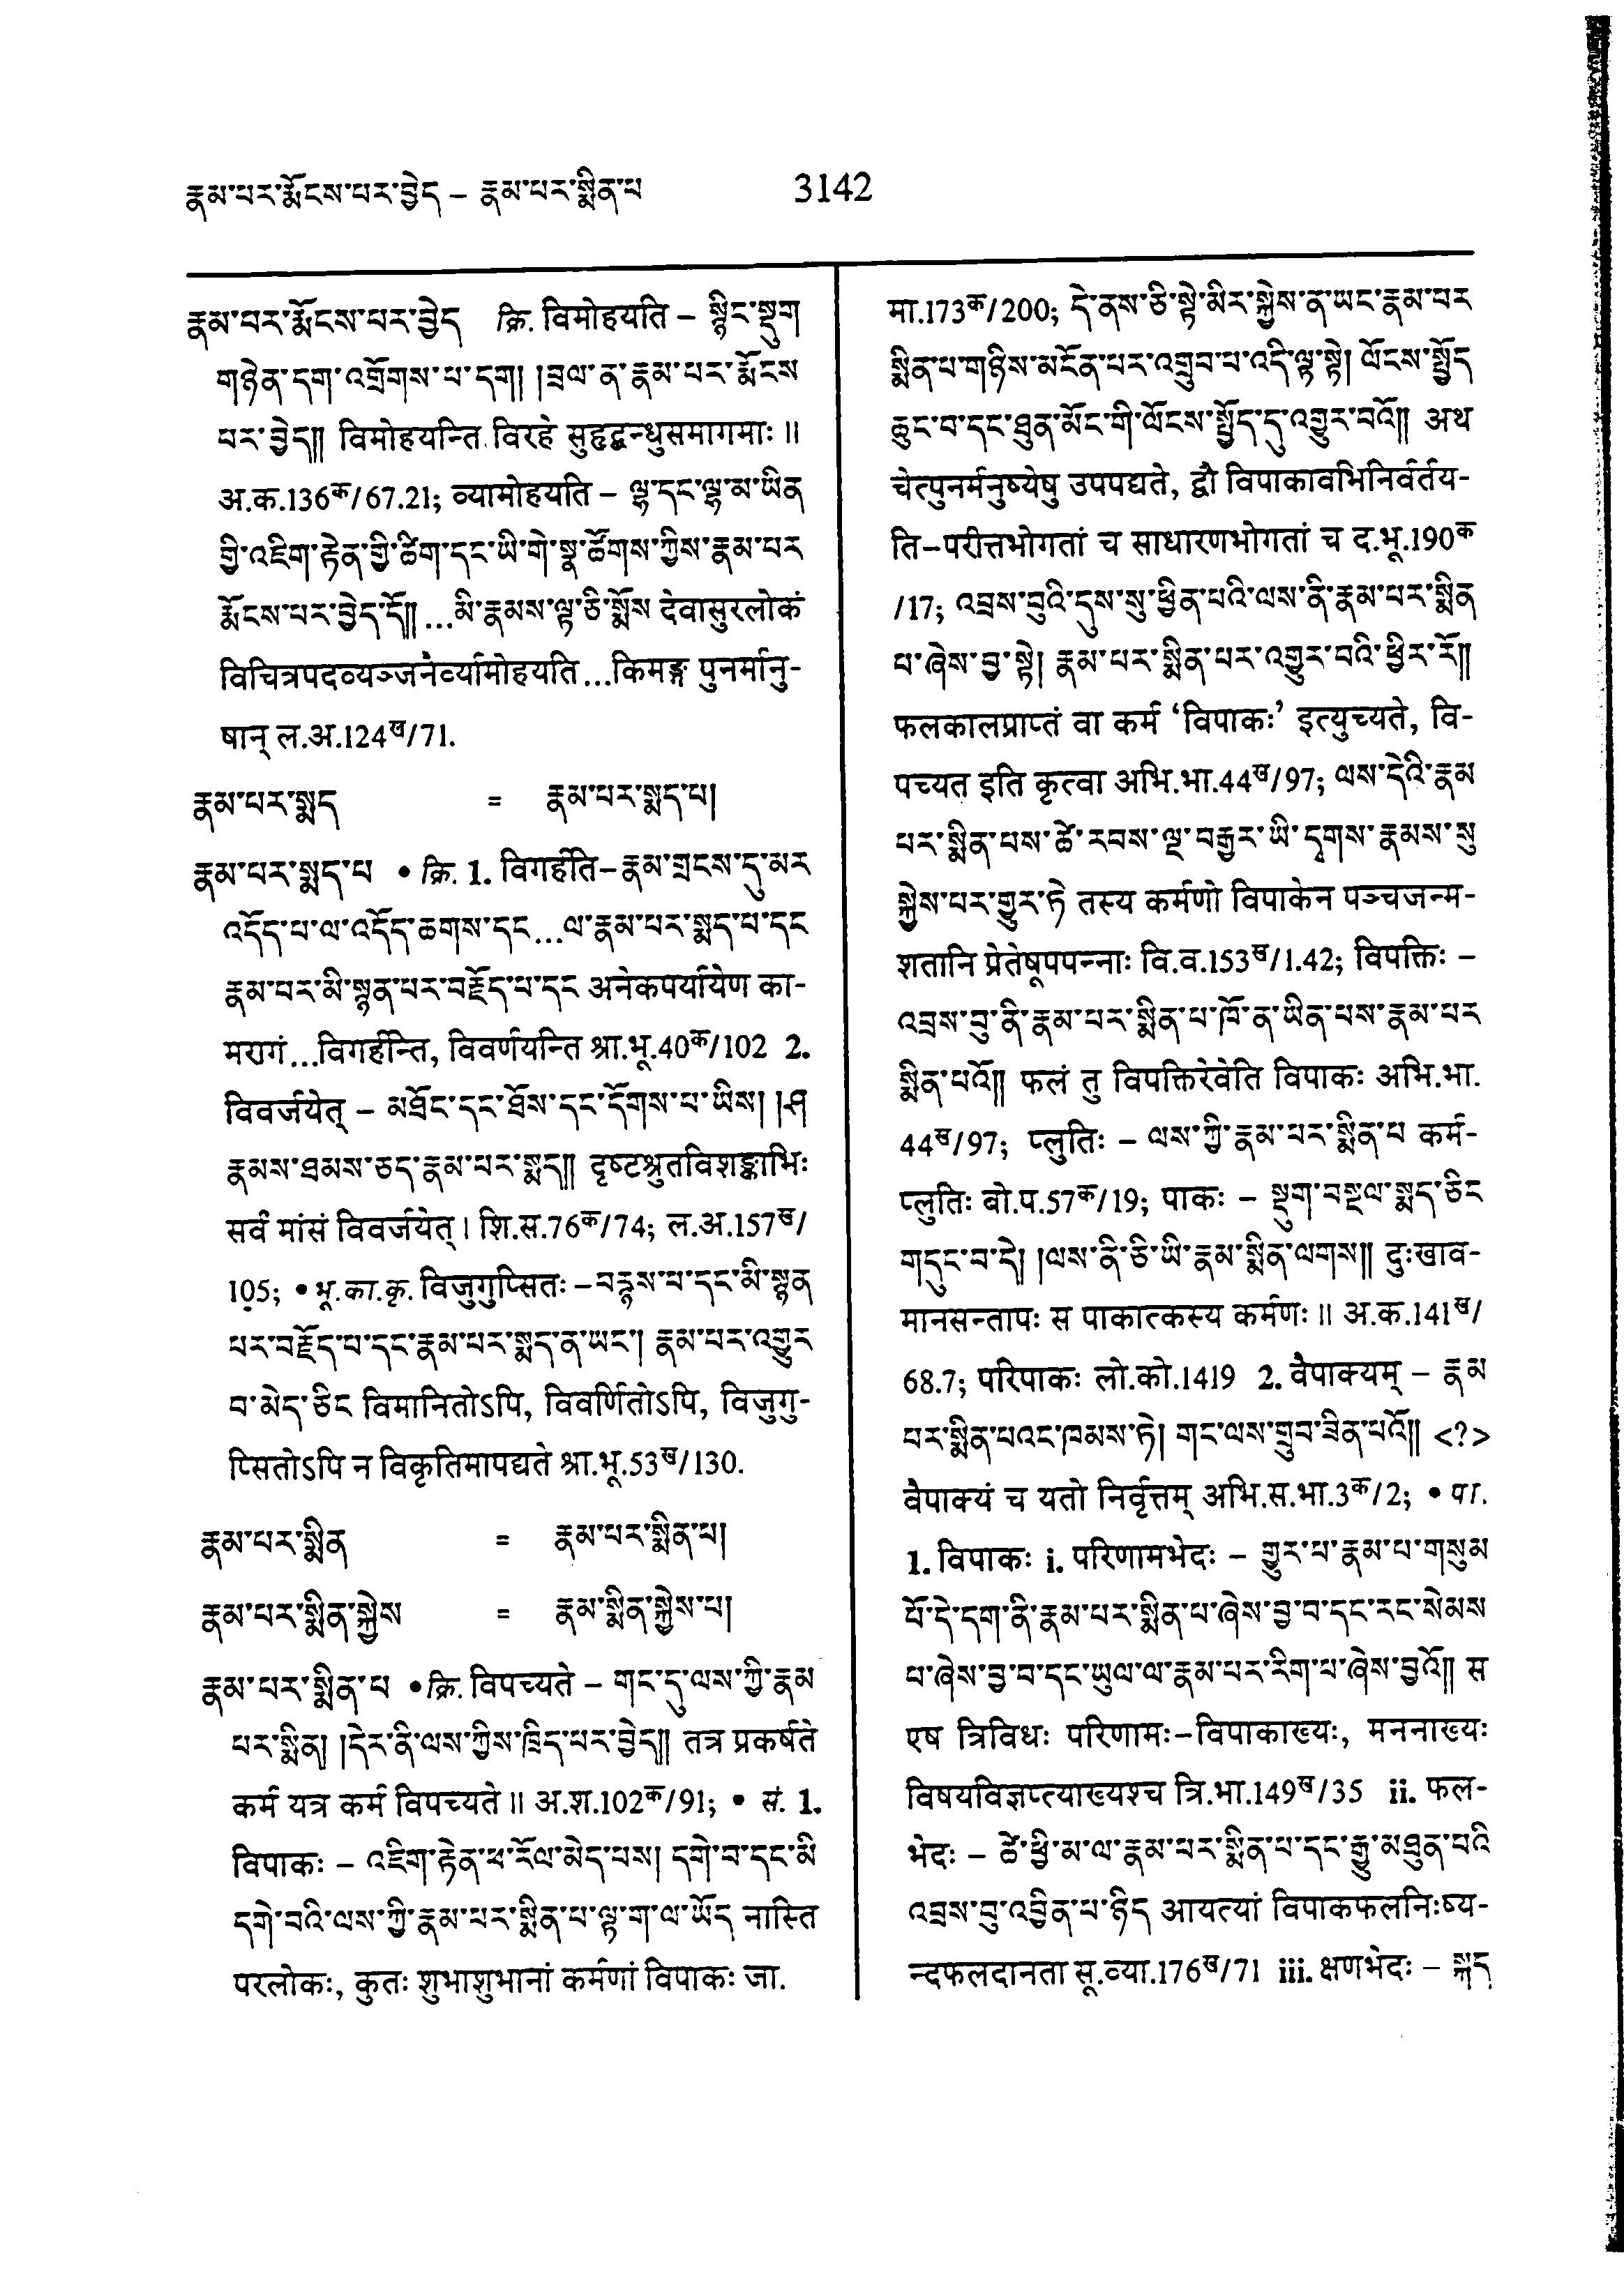 རྣམ་པར་རྨོངས་པར་བྱེད – རྣམ་པར་སྨིན་པ 3142
རྣམ་པར་རྨོངས་པར་བྱེད क्रि. विमोहयति – སྙིང་སྡུག
གཉེན་དག་འགྲོགས་པ་དག། །བྲལ་ན་རྣམ་པར་རྨོངས
པར་བྱེད།། विमोहयन्ति विरहे सुहृद्बन्धुसमागमाः ॥
अ.क.136क/67.21; व्यामोहयति – ལྷ་དང་ལྷ་མ་ཡིན
གྱི་འཇིག་རྟེན་གྱི་ཚིག་དང་ཡི་གེ་སྣ་ཚོགས་ཀྱིས་རྣམ་པར
རྨོངས་པར་བྱེད་དོ།། ...མི་རྣམས་ལྟ་ཅི་སྨོས देवासुरलोकं
विचित्रपदव्यञ्जनैर्व्यामोहयति...किमङ्ग पुनर्मानु-
षान् ल.अ.124ख/71.
རྣམ་པར་སྨད = རྣམ་པར་སྨད་པ།
རྣམ་པར་སྨད་པ • क्रि. 1. विगर्हति–རྣམ་གྲངས་དུ་མར
འདོད་པ་ལ་འདོད་ཆགས་དང...ལ་རྣམ་པར་སྨད་པ་དང
རྣམ་པར་མི་སྙན་པར་བརྗོད་པ་དང अनेकपर्यायेण का-
मरागं...विगर्हन्ति, विवर्णयन्ति श्रा.भू.40क/102 2.
विवर्जयेत् – མཐོང་དང་ཐོས་དང་དོགས་པ་ཡིས། །ཤ
རྣམས་ཐམས་ཅད་རྣམ་པར་སྨད།། दृष्टश्रुतविशङ्काभिः
सर्वं मांसं विवर्जयेत् । शि.स.76क/74; ल.अ.157ख/
105; • भू.का.कृ. विजुगुप्सितः –བརྙས་པ་དང་མི་སྙན
པར་བརྗོད་པ་དང་རྣམ་པར་སྨད་ན་ཡང་། རྣམ་པར་འགྱུར
བ་མེད་ཅིང विमानितोऽपि, विवर्णितोऽपि, विजुगु-
प्सितोऽपि न विकृतिमापद्यते श्रा.भू.53ख/130.
རྣམ་པར་སྨིན = རྣམ་པར་སྨིན་པ།
རྣམ་པར་སྨིན་སྐྱེས = རྣམ་སྨིན་སྐྱེས་པ།
རྣམ་པར་སྨིན་པ •क्रि. विपच्यते – གང་དུ་ལས་ཀྱི་རྣམ
པར་སྨིན། །དེར་ནི་ལས་ཀྱིས་ཁྲིད་པར་བྱེད།། तत्र प्रकर्षते
कर्म यत्र कर्म विपच्यते ॥ अ.श.102क/91; • सं. 1.
विपाकः – འཇིག་རྟེན་ཕ་རོལ་མེད་པས། དགེ་བ་དང་མི
དགེ་བའི་ལས་ཀྱི་རྣམ་པར་སྨིན་པ་ལྟ་ག་ལ་ཡོད नास्ति
परलोकः, कुतः शुभाशुभानां कर्मणां विपाकः जा.
मा.173क/200; དེ་ནས་ཅི་སྟེ་མིར་སྐྱེས་ན་ཡང་རྣམ་པར
སྨིན་པ་གཉིས་མངོན་པར་འགྲུབ་པ་འདི་ལྟ་སྟེ། ལོངས་སྤྱོད
ཆུང་བ་དང་ཐུན་མོང་གི་ལོངས་སྤྱོད་དུ་འགྱུར་བའོ།། अथ
चेत्पुनर्मनुष्येषु उपपद्यते, द्वौ विपाकावभिनिर्वर्तय-
ति–परीत्तभोगतां च साधारणभोगतां च द.भू.190क
/17; འབྲས་བུའི་དུས་སུ་ཕྱིན་པའི་ལས་ནི་རྣམ་པར་སྨིན
པ་ཞེས་བྱ་སྟེ། རྣམ་པར་སྨིན་པར་འགྱུར་བའི་ཕྱིར་རོ།།
फलकालप्राप्तं वा कर्म ‘विपाकः’ इत्युच्यते, वि-
पच्यत इति कृत्वा अभि.भा.44ख/97; ལས་དེའི་རྣམ
པར་སྨིན་པས་ཚེ་རབས་ལྔ་བརྒྱར་ཡི་དྭགས་རྣམས་སུ
སྐྱེས་པར་གྱུར་ཏེ तस्य कर्मणो विपाकेन पञ्चजन्म-
शतानि प्रेतेषूपपन्नाः वि.व.153ख/1.42; विपक्तिः –
འབྲས་བུ་ནི་རྣམ་པར་སྨིན་པ་ཁོ་ན་ཡིན་པས་རྣམ་པར
སྨིན་པའོ།། फलं तु विपक्तिरेवेति विपाकः अभि.भा.
44ख/97; प्लुतिः – ལས་ཀྱི་རྣམ་པར་སྨིན་པ कर्म-
प्लुतिः बो.प.57क/19; पाकः – སྡུག་བསྔལ་སྨད་ཅིང
གདུང་བ་དེ། །ལས་ནི་ཅི་ཡི་རྣམ་སྨིན་ལགས།། दुःखाव-
मानसन्तापः स पाकात्कस्य कर्मणः ॥ अ.क.141ख/
68.7; परिपाकः लो.को.1419 2. वैपाक्यम् – རྣམ
པར་སྨིན་པའང་ཁམས་ཏེ། གང་ལས་གྲུབ་ཟིན་པའོ།། <?>
वैपाक्यं च यतो निर्वृत्तम् अभि.स.भा.3क/2; • पा.
1. विपाकः i. परिणामभेदः – གྱུར་པ་རྣམ་པ་གསུམ
པོ་དེ་དག་ནི་རྣམ་པར་སྨིན་པ་ཞེས་བྱ་བ་དང་རང་སེམས
པ་ཞེས་བྱ་བ་དང་ཡུལ་ལ་རྣམ་པར་རིག་པ་ཞེས་བྱའོ།། स
एष त्रिविधः परिणामः–विपाकाख्यः, मननाख्यः
विषयविज्ञप्त्याख्यश्च त्रि.भा.149ख/35 ii. फल-
भेदः – ཚེ་ཕྱི་མ་ལ་རྣམ་པར་སྨིན་པ་དང་རྒྱུ་མཐུན་པའི
འབྲས་བུ་འབྱིན་པ་ཉིད आयत्यां विपाकफलनिःष्य-
न्दफलदानता सू.व्या.176ख/71 iii. क्षणभेदः – སྐད